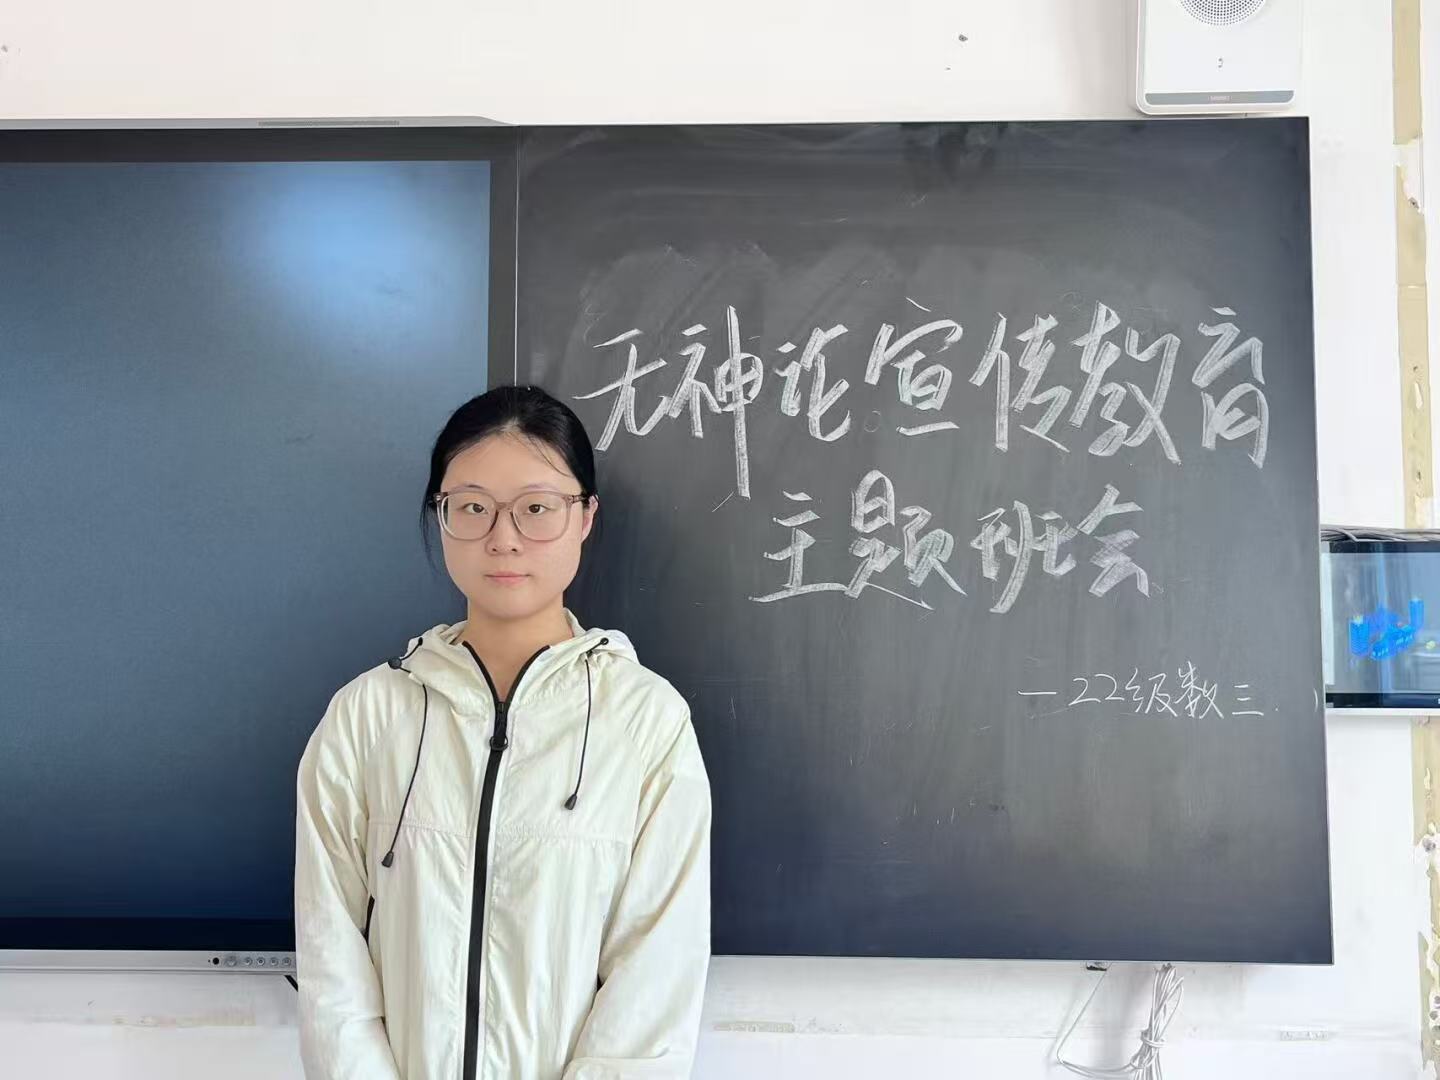 无神论宣传教育
主题班会
—22级数三